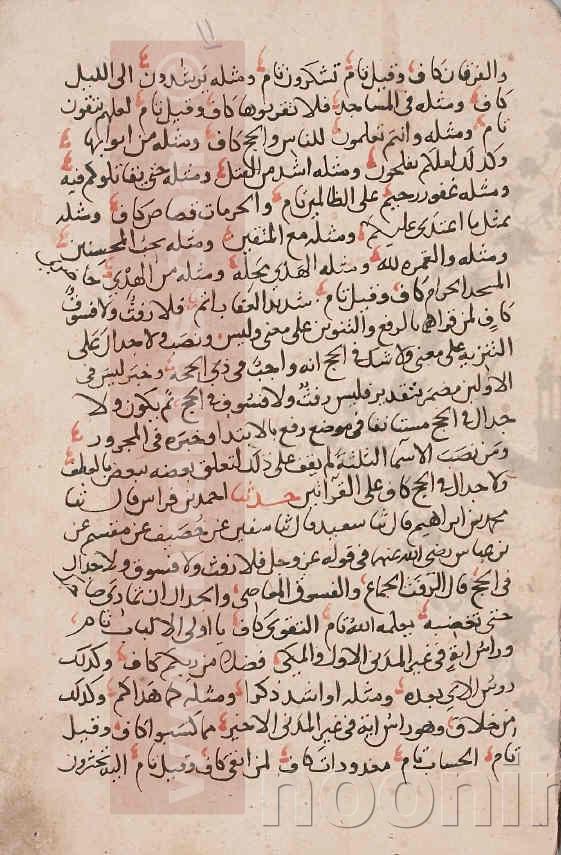 ١١
والفرقان كاف وقيل تام تشكرون تام ومثله يرشدون الى الليل
كاف ومثله فى المساجد فلا تقربوها كاف وقيل تام لعلهم يتقون
تام ومثله وانتم تعلمون للناس والحج كاف ومثله من ابوابها
وكذلك لعلكم تفلحون ومثله اشد من القتل ومثله حتى يقاتلوكم فيه
ومثله غفور رحيم على الظالمين تام والحرمات قصاص كاف ومثله
بمثل ما اعتدى عليكم ومثله مع المتقين ومثله يحب المحسنين
ومثله والعمرة لله ومثله الهدى محله ومثله من الهدى حاضرى
المسجد الحرام كاف وقيل تام شديد العقاب اتم فلا رفث ولا فسوق
كاف لمن قراهما بالرفع والتنوين على معنى وليس ونصب ولا جدال على
التنزيه على معنى ولا شك فى الحج انه واجب فى ذى الحجة وخبر ليس فى
الاولين مضمر بتقدير فليس رفث ولا فسوق فى الحج ثم يكون ولا
جدال فى الحج مستانفا فى موضع رفع بالابتدا وخبره فى المجرور
ومن نصب الاسما الثلثة لم يقف على ذلك لتعلق بعضه ببعض بالعطف
ولا جدال فى الحج كاف على القرآتين حدثنا احمد بن فراس قال ثنا
محمد بن ابراهيم قال ثنا سعيد قال ثنا سفين عن خصيف عن مقسم عن
بن عباس رضى الله عنه فى قوله عز وجل فلا رفث ولا فسوق ولا جدال
فى الحج قال الرفث الجماع والفسوق المعاصى والجدال ان تمارى صاحبك
حتى تغضبه يعلمه الله تام التقوى كاف يا اولى الالباب تام
وراس اية فى غير المدنى الاول والمكى فضلا من ربكم كاف وكذلك
روس الآى بعده ومثله او اشد ذكرا ومثله كما هداكم وكذلك
من خلاق وهو راس اية فى غير المدنى الاخير مما كسبوا كاف وقيل
تام الحساب تام معدودات كاف لمن اتقى كاف وقيل تام اليه تحشرون
www.
noonin